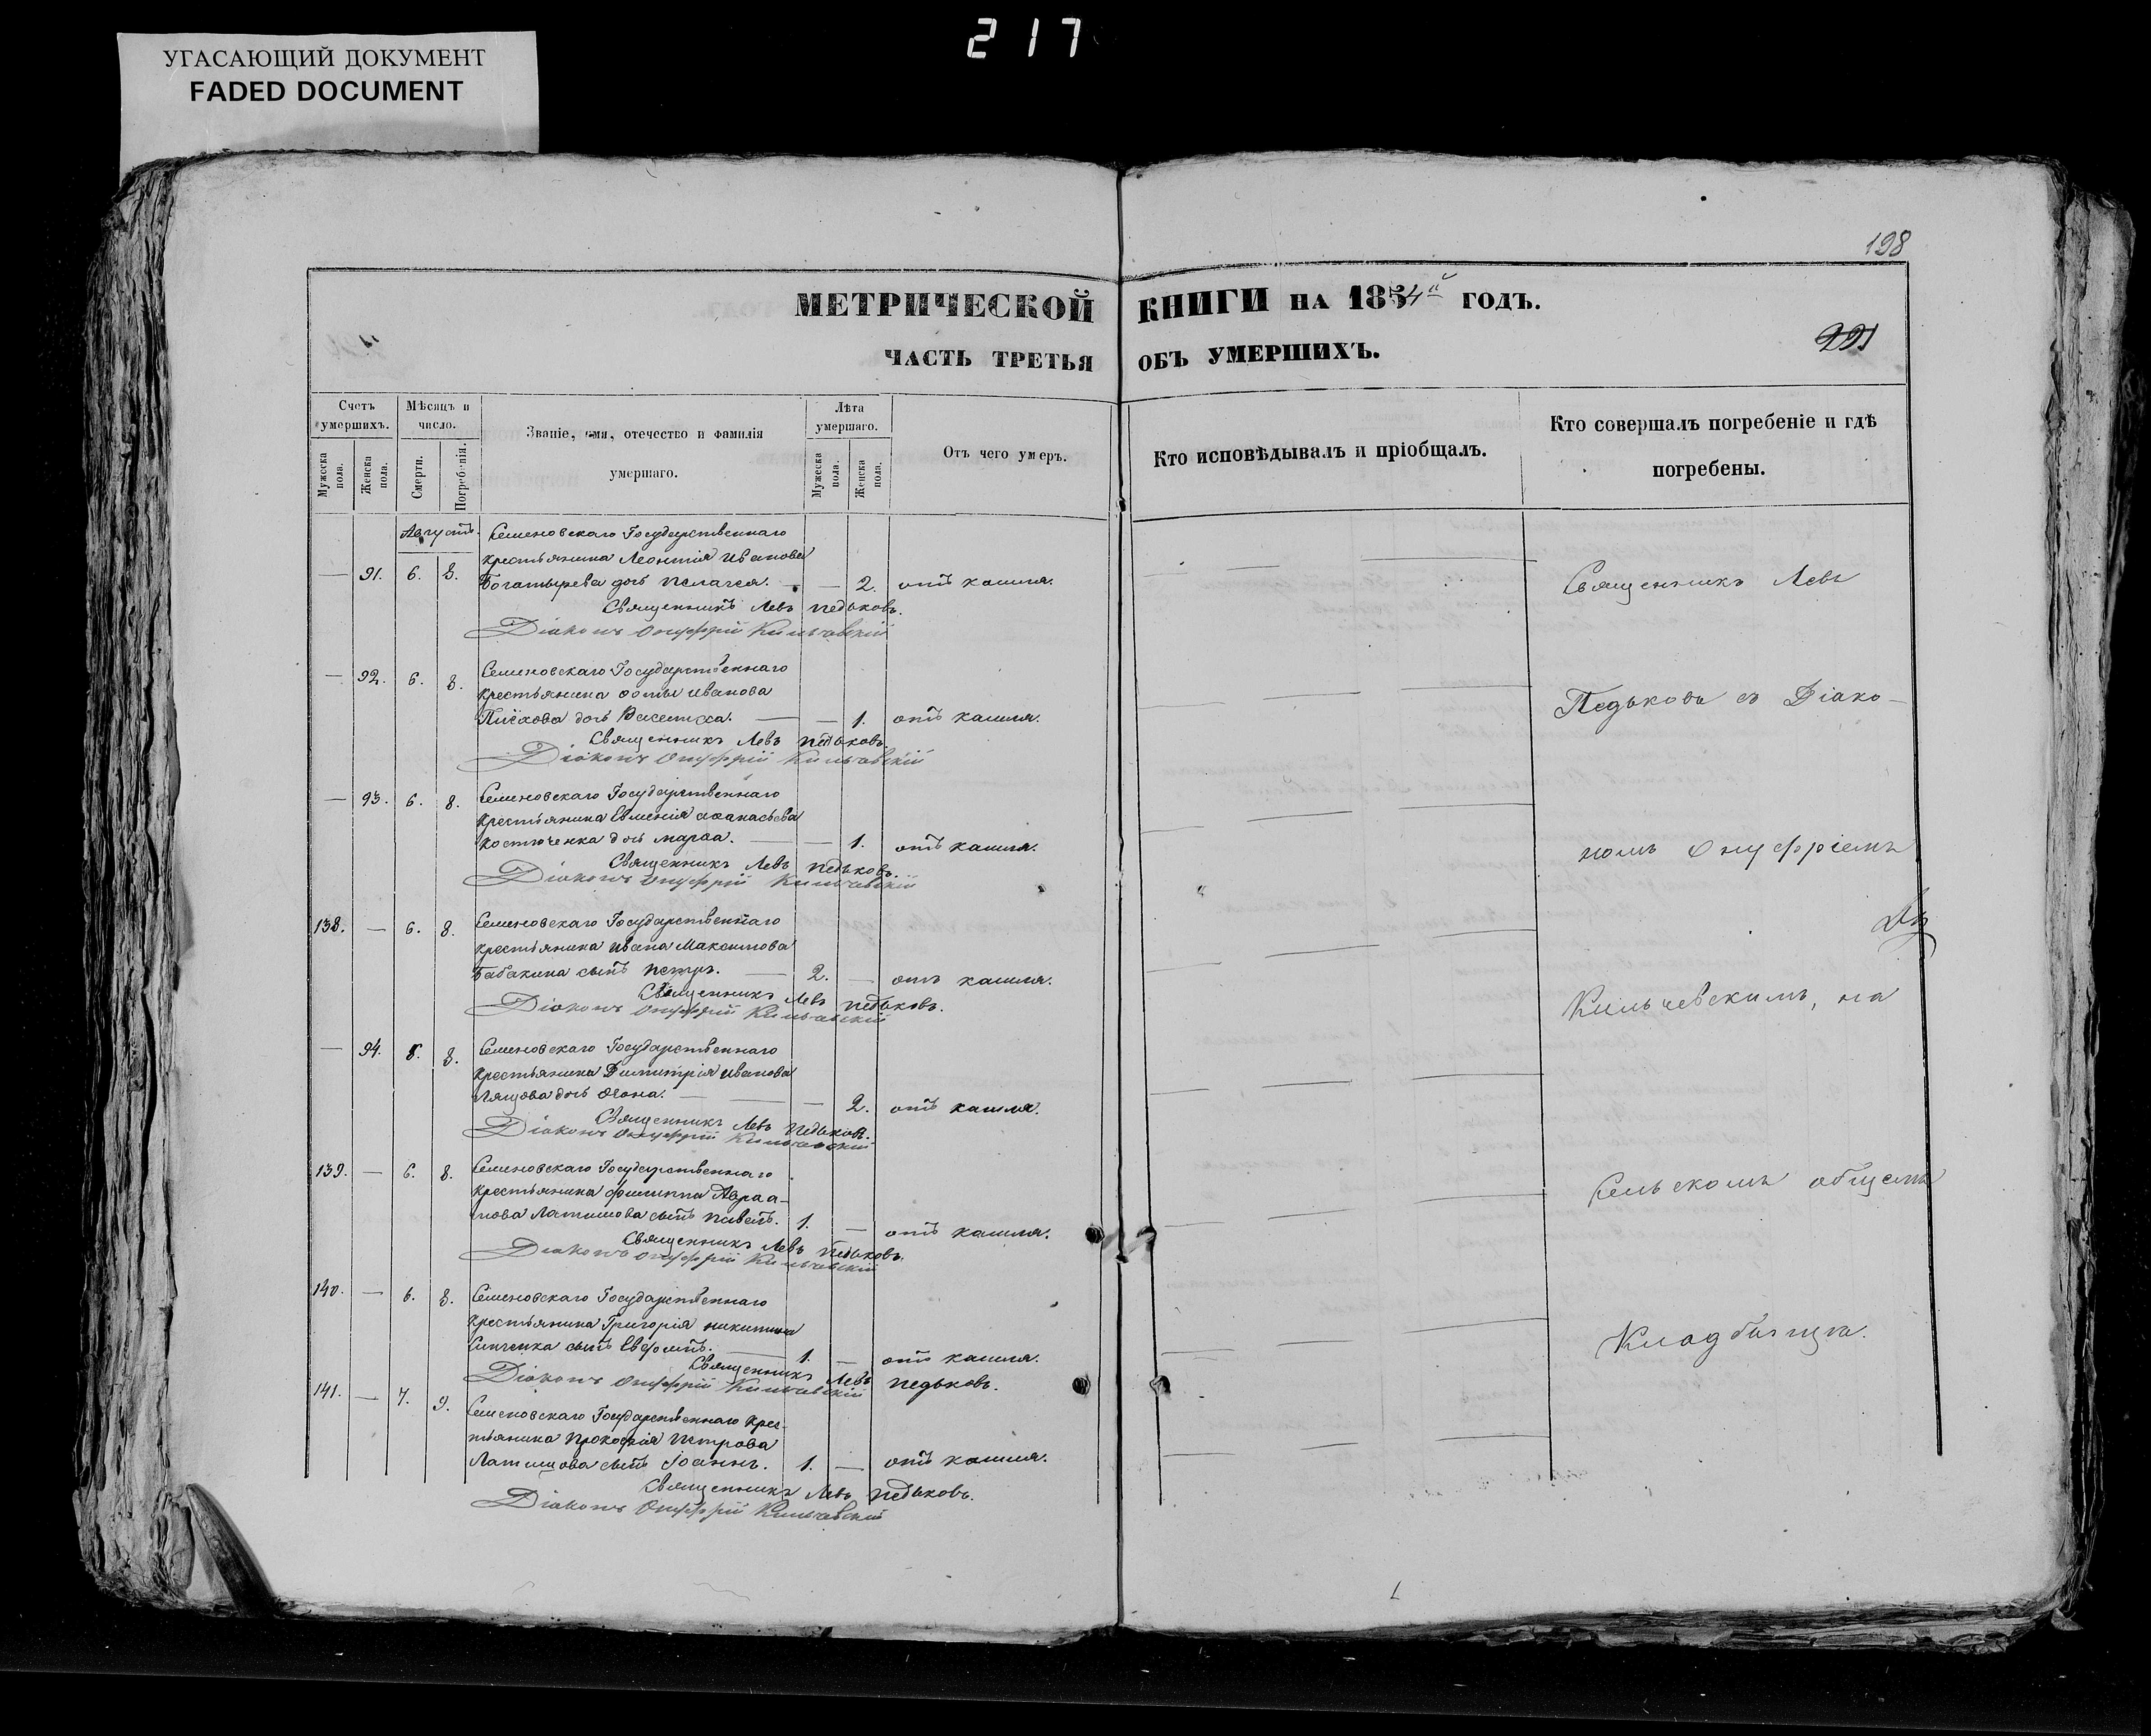 217
УГАСАЮЩИЙ ДОКУМЕНТ
FADED DOCUMENT
198
МЕТРИЧЕСКОЙ КНИГИ НА 1854й ГОДЪ.
221
ЧАСТЬ ТРЕТЬЯ ОБЪ УМЕРШИХЪ.
Счетъ умершихъ.
Мужеска пола.
Женска пола.
Мѣсяцъ и число.
Смерти.
Погребенія.
Званіе, имя, отечество и фамилія умершаго.
Лѣта умершаго.
Мужеска пола.
Женска пола.
Отъ чего умеръ.
Кто исповѣдывалъ и пріобщалъ.
Кто совершалъ погребеніе и гдѣ погребены.
Августъ. Семеновскаго Государственнаго
крестьянина Леонтія Иванова
— 91. 6. 8. Богатырева дочь Пелагея. — — 2. отъ кашля.
Священникъ Левъ Педьковъ.
Діаконъ Онуфрій Кильчевскій
— 92. 6. 8. Семеновскаго Государственнаго
крестьянина Ѳомы Иванова
дочь — — 1. отъ кашля.
Священникъ Левъ Педьковъ.
Діаконъ Онуфрій Кильчевскій
— 93. 6. 8. Семеновскаго Государственнаго
крестьянина Евменія Аѳанасьева
Костюченка дочь Марѳа. — — 1. отъ кашля.
Священникъ Левъ Педьковъ.
Діаконъ Онуфрій Кильчевскій
138. — 6. 8. Семеновскаго Государственнаго
крестьянина Ивана Максимова
Бабакина сынъ Петръ. — 2. — отъ кашля.
Священникъ Левъ Педьковъ.
Діаконъ Онуфрій Кильчевскій
— 94. 8. 8. Семеновскаго Государственнаго
крестьянина Димитрія Иванова
дочь — — 2. отъ кашля.
Священникъ Левъ Педьковъ.
Діаконъ Онуфрій Кильчевскій
139. — 6. 8. Семеновскаго Государственнаго
крестьянина Филиппа Авраа-
мова Латышова сынъ Павелъ. 1. — отъ кашля.
Священникъ Левъ Педьковъ.
Діаконъ Онуфрій Кильчевскій
140. — 6. 8. Семеновскаго Государственнаго
крестьянина Григорія Никитина
сынъ — 1. — отъ кашля.
Священникъ Левъ Педьковъ.
Діаконъ Онуфрій Кильчевскій
141. — 7. 9. Семеновскаго Государственнаго крес-
тьянина Прокофія Петрова
Латышова сынъ Іоаннъ. 1. — отъ кашля.
Священникъ Левъ Педьковъ.
Діаконъ Онуфрій Кильчевскій
Священникъ Левъ
Педьковъ съ Діако-
номъ Онуфріемъ
Кильчевскимъ, на
сельскомъ общемъ
Кладбищѣ.